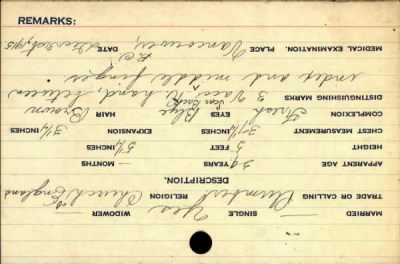 MARRIED — SINGLE Yes WIDOWER —
TRADE OR CALLING Plumber RELIGION Church of England
DESCRIPTION.
APPARENT AGE 39 YEARS — MONTHS
HEIGHT 5 FEET 5¼ INCHES
CHEST MEASUREMENT 37¼ INCHES EXPANSION 3¼ INCHES
COMPLEXION Fresh EYES Blue HAIR Brown
DISTINGUISHING MARKS 3 Vacc. Scar Back R hand between
index and middle finger
MEDICAL EXAMINATION. PLACE Vancouver, B.C. DATE
REMARKS: